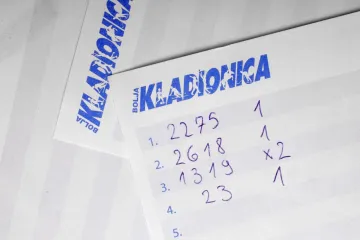 BOLJA KLADIONICA
BOLJA KLADIONICA
1. 2275 1
2. 2618 1
3. 1319 x2
4. 23 1
5.